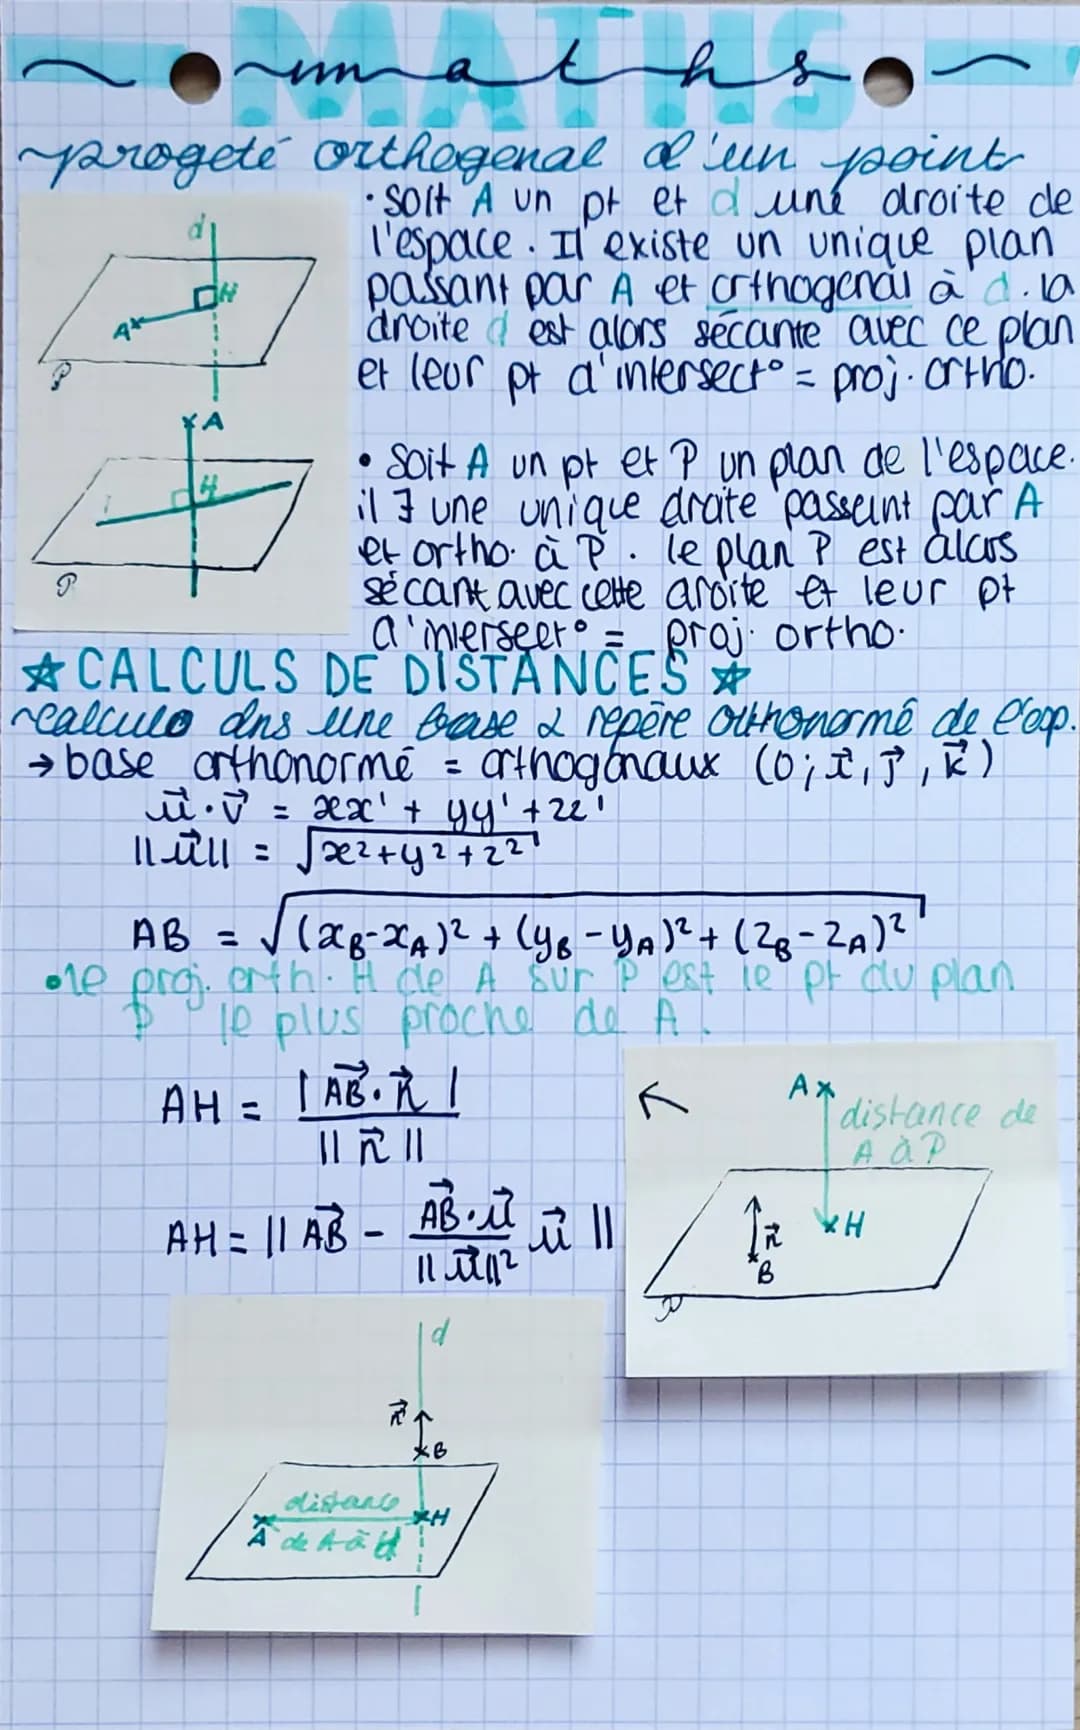 MATHS
maths
progeté orthogonal d'un point
• soit A un pt et d une droite de
l'espace. Il existe un unique plan
passant par A et orthogonal à d. la
droite d est alors sécante avec ce plan
et leur pt d'intersect° = proj. ortho.
d
H
A
P
A
H
P
• Soit A un pt et P un plan de l'espace.
il ∃ une unique droite passant par A
et ortho. à P. le plan P est alors
sécant avec cette droite et leur pt
d'intersect° = proj. ortho.
☆ CALCULS DE DISTANCES ☆
calculs dns une base & repère orthonormé de l'esp.
→ base orthonormé = orthogonaux (0; i⃗, j⃗, k⃗)
u⃗·v⃗ = xx' + yy' + zz'
||u⃗|| = √x²+y²+z²
AB = √(xB-xA)² + (yB-yA)² + (zB-zA)²
• le proj. orth. H de A sur P est le pt du plan
P le plus proche de A.
AH = |AB⃗·n⃗| / ||n⃗||
AH = || AB⃗ - AB⃗·u⃗ / ||u⃗||² u⃗ ||
A
distance de
A à P
n⃗
H
B
P
d
n⃗
B
distance
H
A de A à d